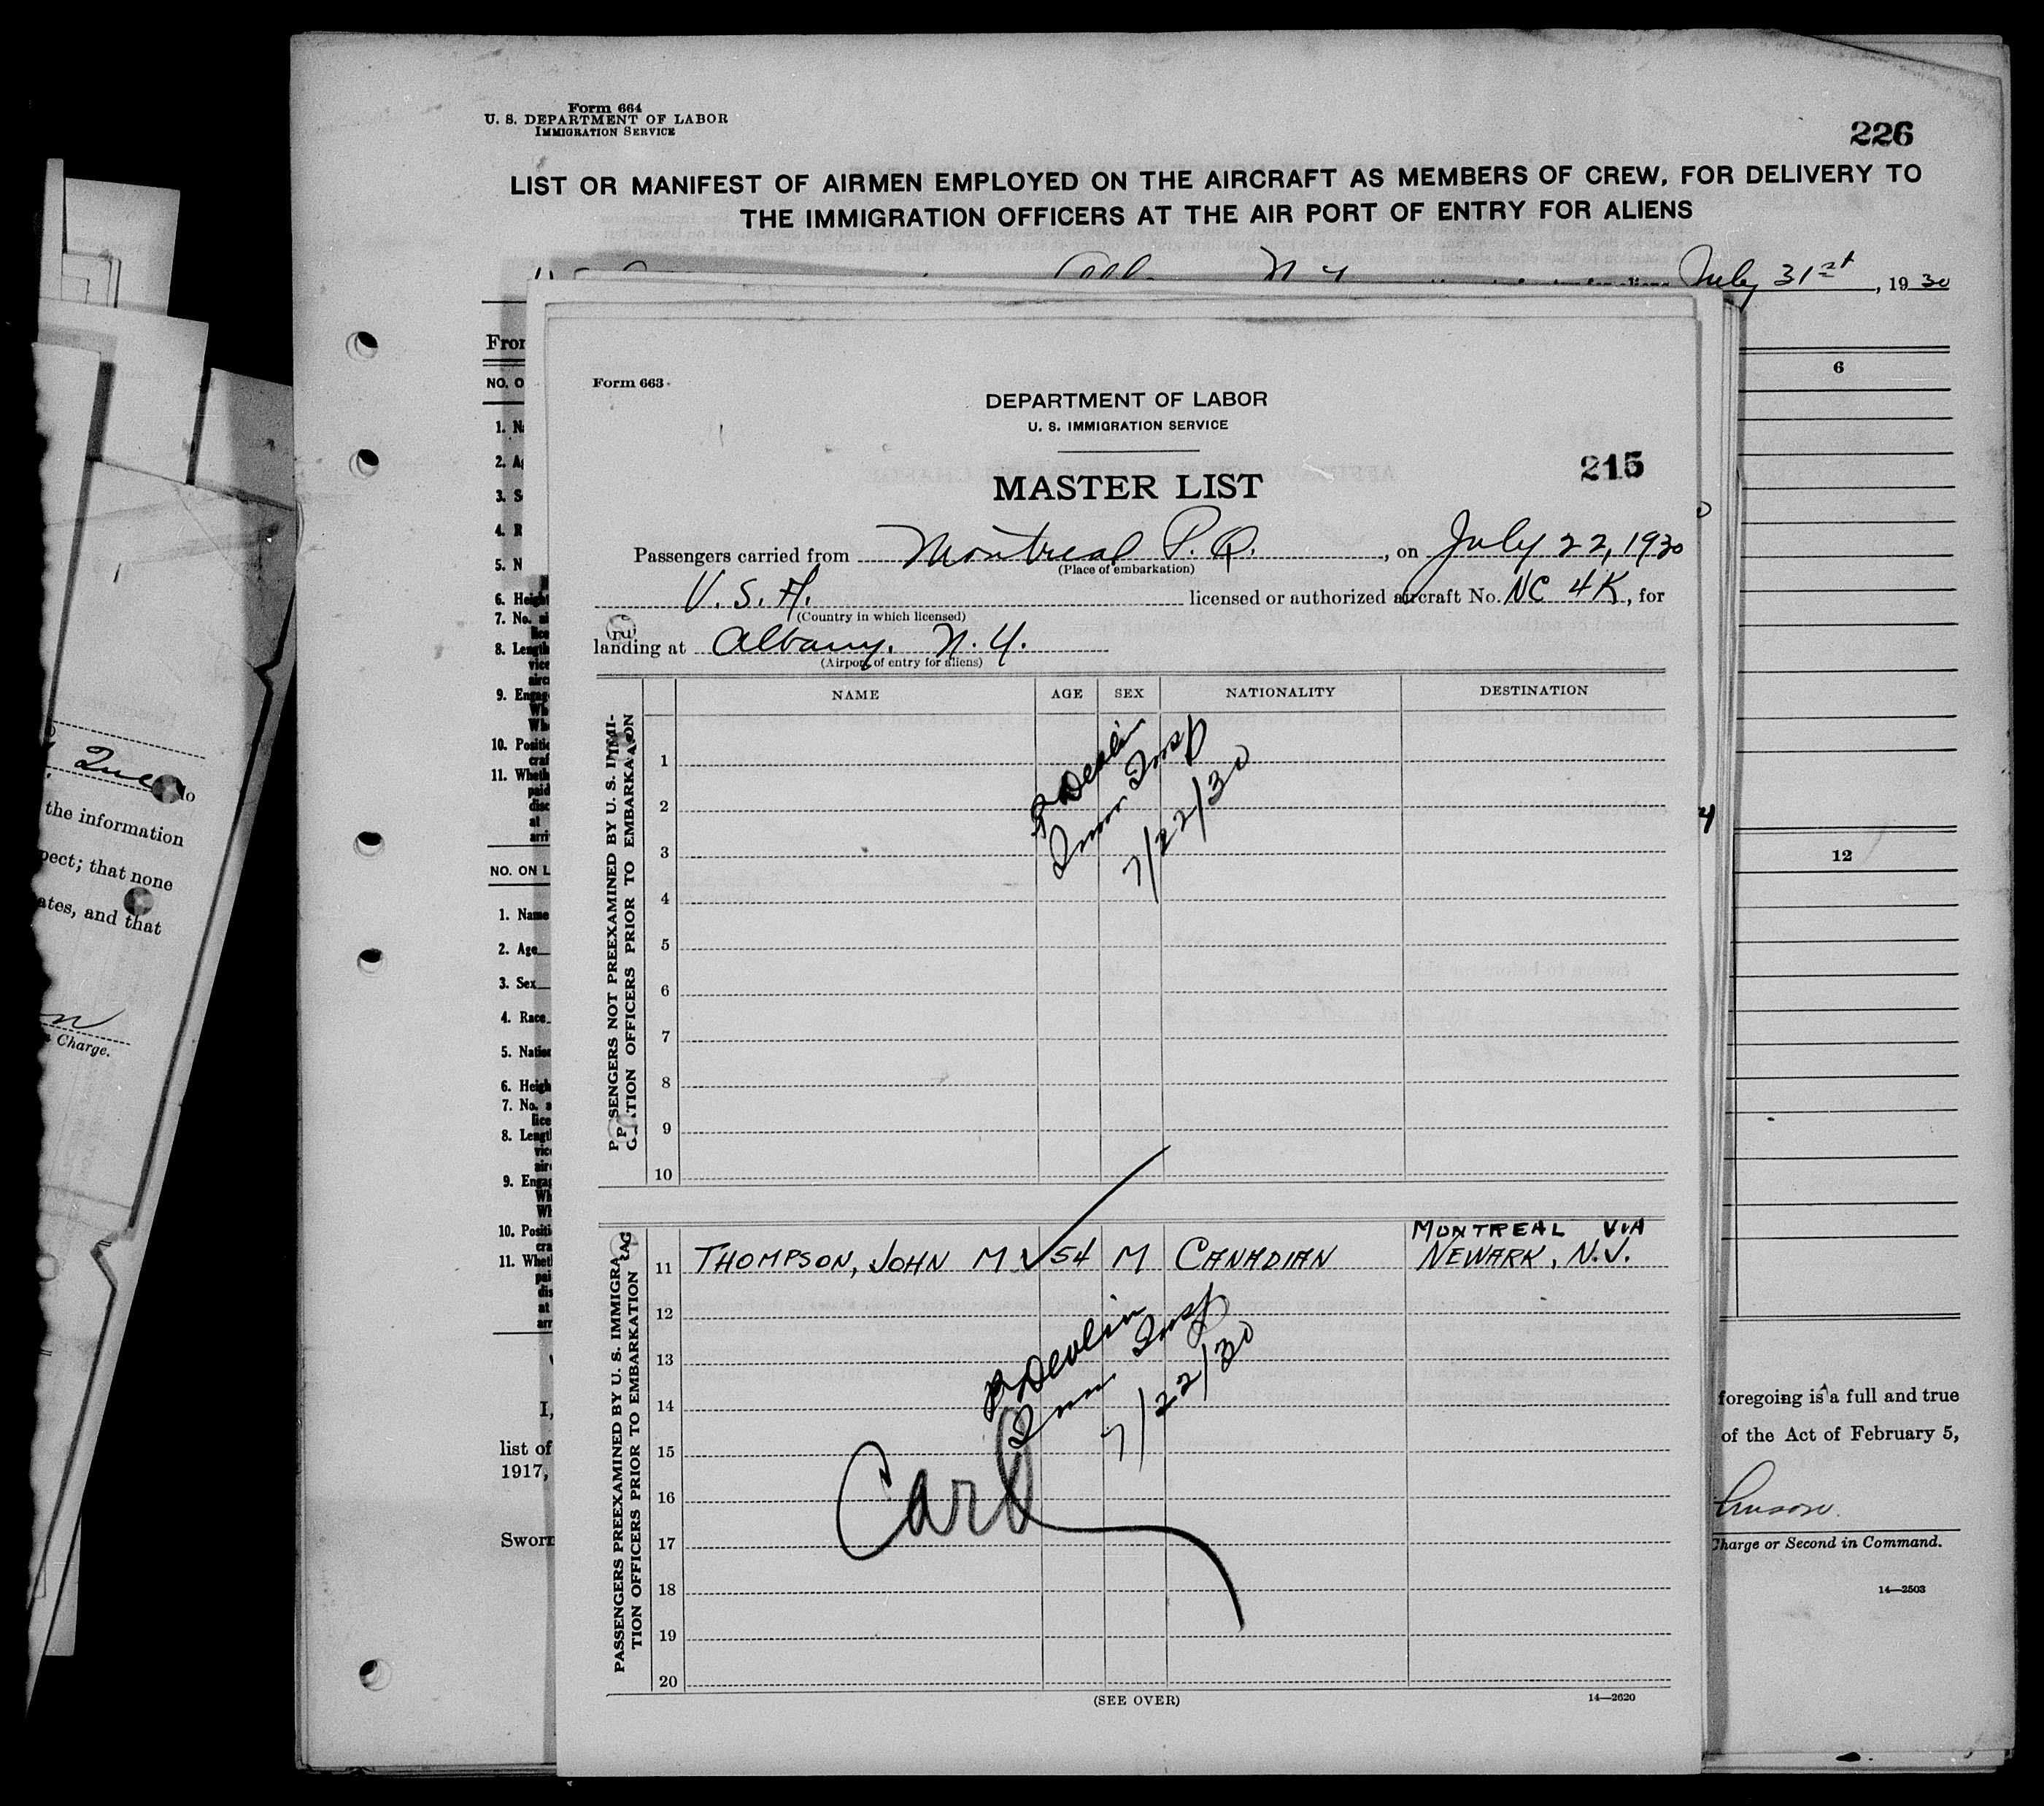 Form 664
U. S. DEPARTMENT OF LABOR
IMMIGRATION SERVICE
226
LIST OR MANIFEST OF AIRMEN EMPLOYED ON THE AIRCRAFT AS MEMBERS OF CREW, FOR DELIVERY TO
THE IMMIGRATION OFFICERS AT THE AIR PORT OF ENTRY FOR ALIENS
July 31st, 1930
6
NO. O
1. N
2. A
3. S
4. R
5. N
6. Height
7. No.
8. Length
9. Engag
10. Positio
11. Wheth
12
NO. ON L
1. Name
2. Age
3. Sex
4. Race
5. Nation
6. Heigh
7. No.
8. Lengt
9. Engag
10. Positi
11. Whet
I,
list of
1917,
Sworn
foregoing is a full and true
of the Act of February 5,
Charge or Second in Command.
14—2503
Form 663
DEPARTMENT OF LABOR
U. S. IMMIGRATION SERVICE
215
MASTER LIST
Passengers carried from Montreal P. Q., on July 22, 1930
(Place of embarkation)
U. S. A. licensed or authorized aircraft No. NC 4K, for
(Country in which licensed)
landing at Albany. N. Y.
(Airport of entry for aliens)
NAME AGE SEX NATIONALITY DESTINATION
PASSENGERS NOT PREEXAMINED BY U. S. IMMI-
GRATION OFFICERS PRIOR TO EMBARKATION
1
2
3
4
5
6
7
8
9
10
P Devlin
Imm Insp
7/22/30
PASSENGERS PREEXAMINED BY U. S. IMMIGRA-
TION OFFICERS PRIOR TO EMBARKATION
MONTREAL VIA
11 THOMPSON, JOHN M 54 M CANADIAN NEWARK, N.J.
12
13
14
15
16
17
18
19
20
P Devlin
Imm Insp
7/22/30
Card
(SEE OVER)
14—2620
Que to
the information
pect; that none
ates, and that
Charge.